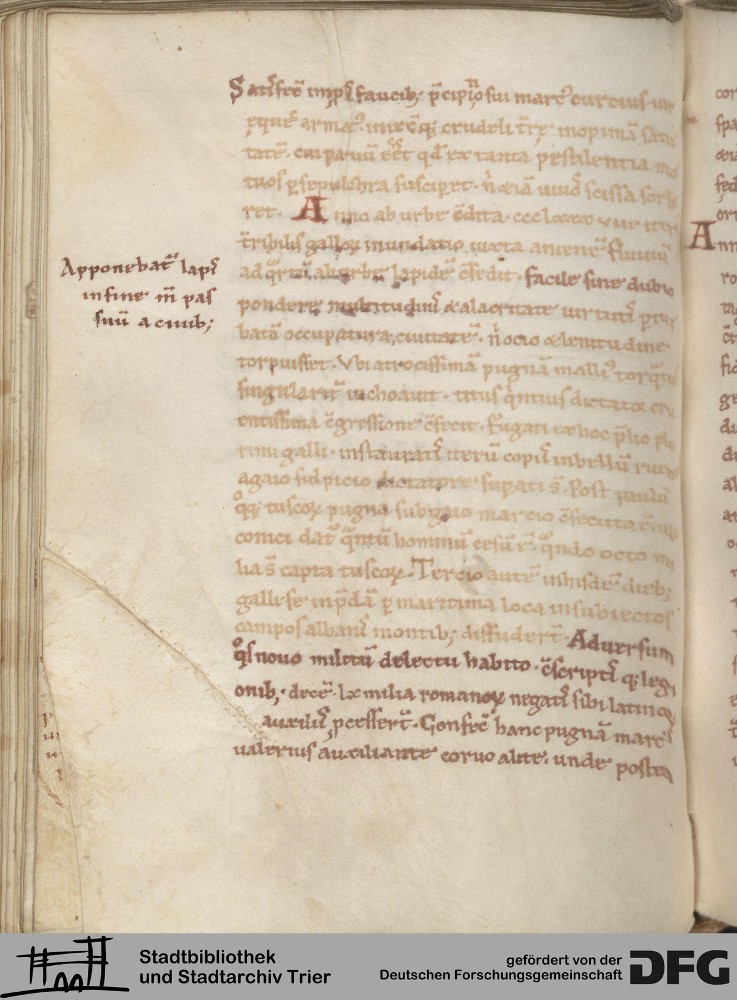 Satisfec̄ impiis faucib; p̄cipitio sui marc᷒ curcius. uir
eques armat᷒. iniecitq; crudeli t̄rę inopinā satie
tatē. cui parū ēēt qđ ex tanta pestilentia mor
tuos p sepulchra susciperet. n̄ & iā uiuos scissa sorbe
ret. Anno ab urbe cōdita. ccc lxxx viii iteṝ
t̄ribilis galloꝝ inundatio. iuxta anienē fluuiū
ad q̄rtū ab urbe lapidē cōsedit. facile sine dubio
pondere multitudinis & alacritate uirtutis p̄tur
batā occupatura ciuitatē. n̄ ocio & lenitudine
torpuisset. Vbi atrocissimā pugnā malli᷒ torq̄tus
singularit̄ inchoauit. titus q̄ntius dictator cru
entissima cōgressione cōfecit. Fugati ex hoc p̄lio plu
rimi galli. instauratis iterū copiis in bellū ruentes
a gaio sulpicio dictatore supati s̄. Post paulū
q̄q; tuscoꝝ pugna sub gaio marcio cōsecuta ē. ubi
conici dat᷒ q̄ntū hominū cęsū ē. q̄ndo octo mi
lia s̄ capta tuscoꝝ. Tercio autē in hisdē dieb;
galli se in p̄dā p maritima loca in subiectos
campos albanis montib; diffudert̄. Aduersum
q̄s nouo militū delectu habito. cōscriptis q; legi
onib; decē. lx milia romanoꝝ negatis sibi latinoꝝ
auxiliis pcessert̄. Confec̄ hanc pugnā marc᷒
ualerius auxiliante coruo alite. unde postea
Apponebat̄ lapis
in fine m̄ pas
suū a ciuib;
Stadtbibliothek
und Stadtarchiv Trier
gefördert von der
Deutschen Forschungsgemeinschaft
DFG